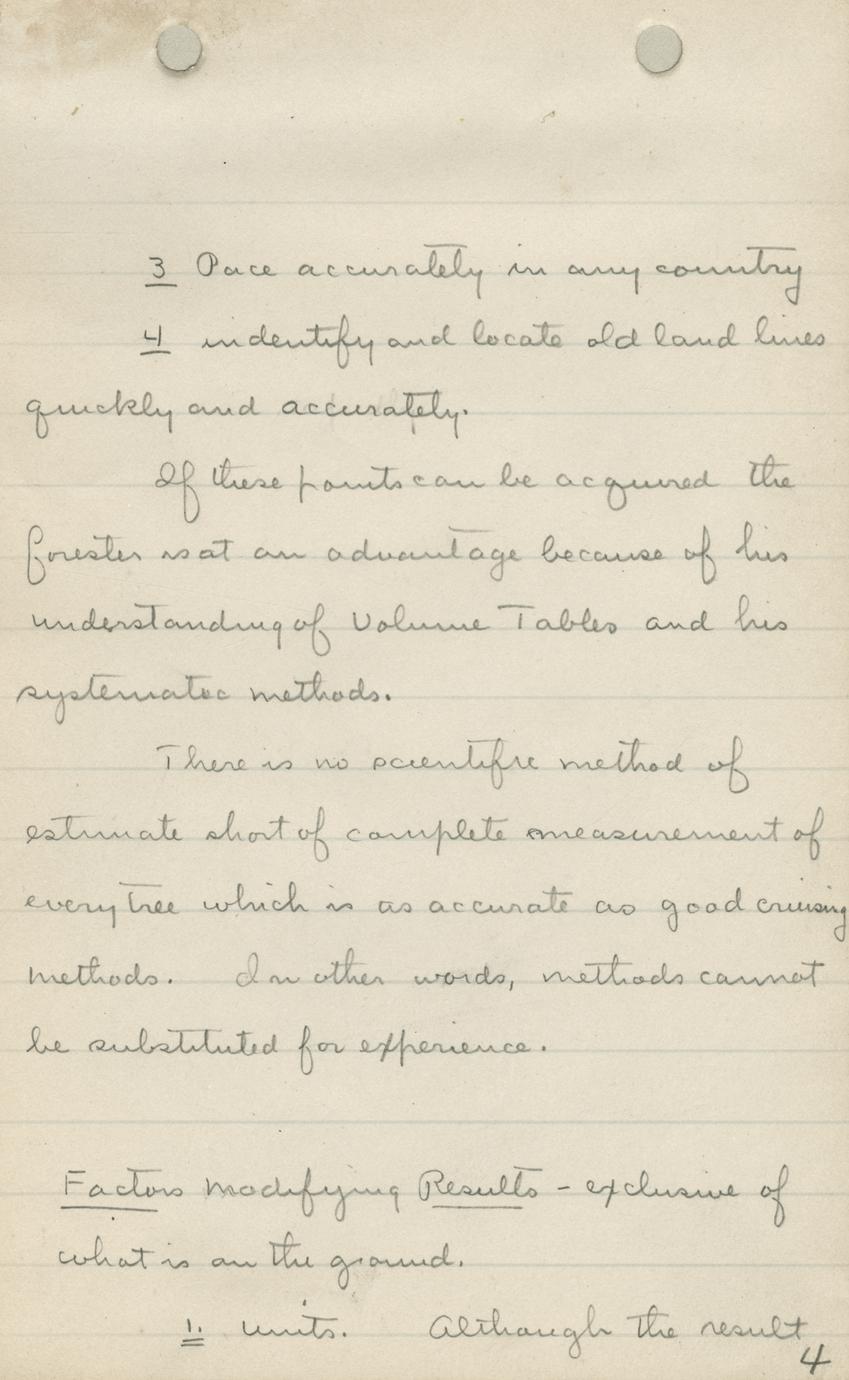 3 Pace accurately in any country
4 indentify and locate old land lines
quickly and accurately.
If these points can be acquired the
forester is at an advantage because of his
understanding of Volume Tables and his
systematec methods.
There is no scientific method of
estimate short of complete measurement of
every tree which is as accurate as good cruising
methods. In other words, methods cannot
be substituted for experience.
Factors Modifying Results - exclusive of
what is on the ground.
1. units. Although the result
4